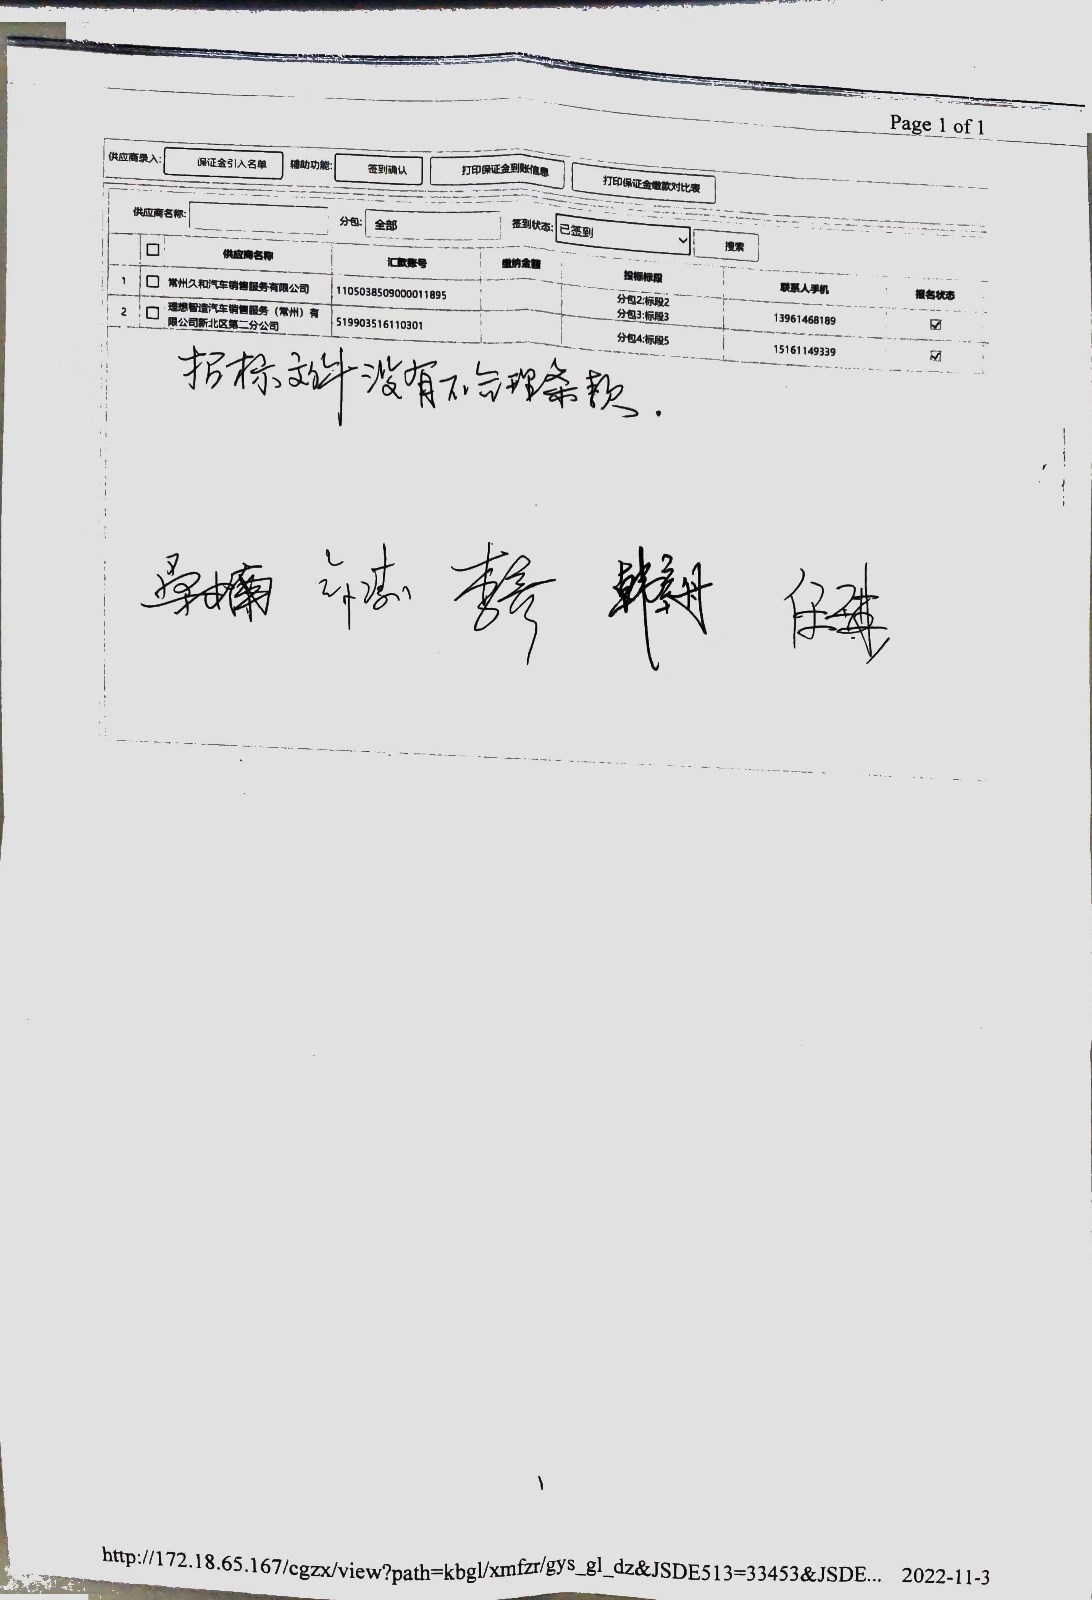 Page 1 of 1
供应商录入: 保证金引入名单 辅助功能: 签到确认 打印保证金到账信息 打印保证金缴款对比表
供应商名称: 分包: 全部 签到状态: 已签到 搜索
供应商名称 汇款账号 缴纳金额 投标标段 联系人手机 报名状态
1 常州久和汽车销售服务有限公司 1105038509000011895 分包2:标段2 13961468189
分包3:标段3
2 理想智造汽车销售服务（常州）有 519903516110301 分包4:标段5 15161149339
限公司新北区第二分公司
招标文件没有不合理条款.
http://172.18.65.167/cgzx/view?path=kbgl/xmfzr/gys_gl_dz&JSDE513=33453&JSDE... 2022-11-3